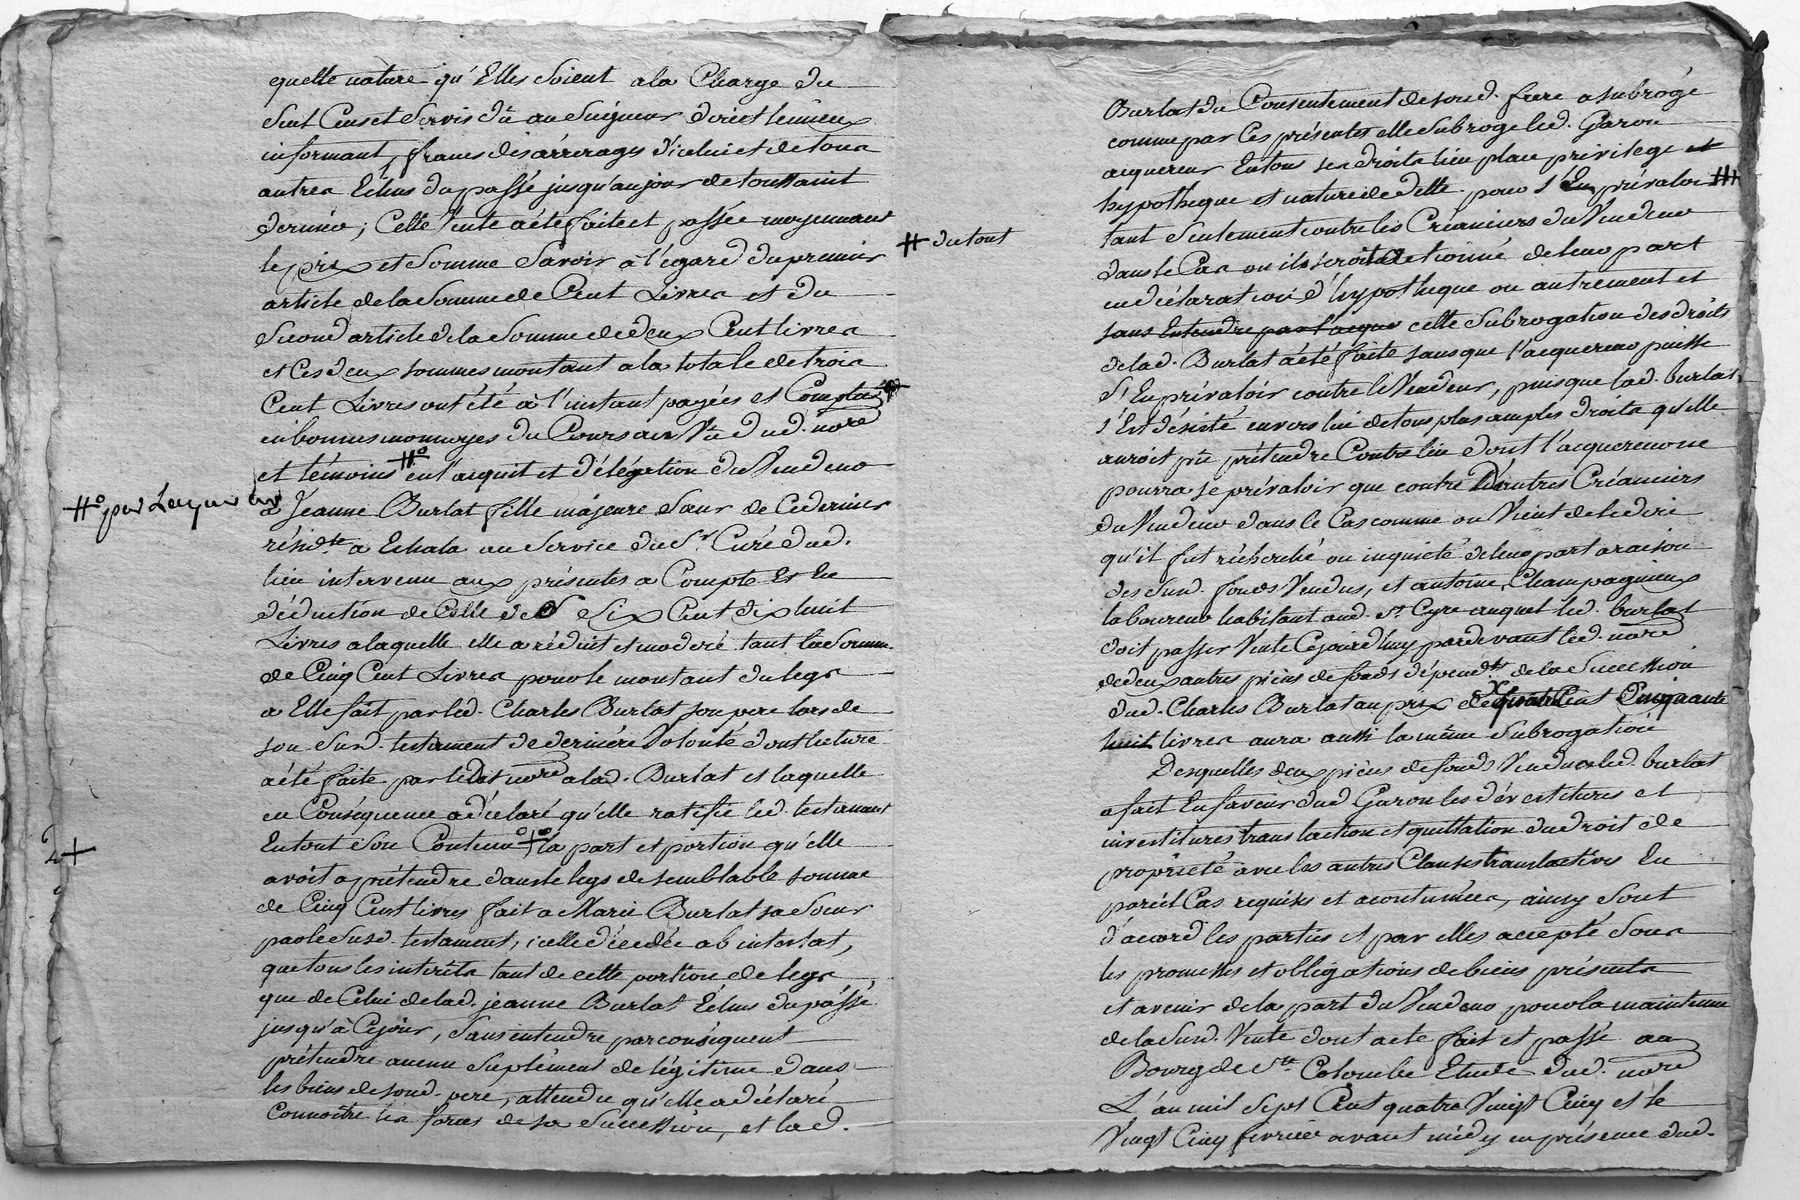 quelle nature qu'Elles soient a la Charge du
Seul Cens et Servis dû au Seigneur direct
informant, francs des arrérages d'icelui et de tous
autres Echus du passé jusqu'au jour de toussaint
dernier; Cette Vente a été faite et passée moyennant
le prix et Somme Savoir à l'égard du premier
article de la Somme de Cent Livres et du
Second article de la Somme de deux Cent livres
et Ces deux sommes montant a la totale de trois
Cent Livres ont été à l'instant payées et Comptées
en bonnes monnoyes du Cours au Vu dud. nore
et témoins #° en l'acquit et délégation du Vendeur
#° par Lacquereur
a Jeanne Burlat fille majeure Sœur de Ce dernier
résidte a Echala au Service du Sr. Curé dud.
lieu intervenu aux présentes a Compte Et En
déduction de Celle de Six Cent dix huit
Livres a laquelle elle a réduit et moderé tant la Somme
de Cinq Cent Livres pour le montant du legs
a Elle fait par led. Charles Burlat son pere lors de
son Susd. testament de derniére Volonté dont lecture
a été faite par ledit nore a lad. Burlat et laquelle
en Conséquence a déclaré qu'elle ratifie led. testament
En tout Son Contenu la part et portion qu'elle
2+
avoit a prétendre dans le legs de semblable somme
de Cinq Cent livres fait a Marie Burlat sa Sœur
par le Susd. testament, icelle décédée ab intestat,
que tous les interêts tant de cette portion de legs
que de Celui de lad. jeanne Burlat Echus du passé
jusqu'à Ce jour, Sans entendre par conséquent
prétendre aucun Suplément de légitime dans
les biens de sond. pere, attendu qu'elle a déclaré
Connoitre les forces de sa Succession, et lad.
Burlat du Consentement de sond. frere a subrogé
comme par Ces présentes elle Subroge led. Garon
acquereur En tous ses droits lieu place privilege et
hypotheque et nature de dette pour s'En prévaloir #
# du tout
tant Seulement contre les Créanciers du Vendeur
dans le Cas ou il seroit actionné de leur part
en déclaration d'hypotheque ou autrement et
sans Entendre par l'acquer cette Subrogation des droits
de lad. Burlat a été faite sans que l'acquereur puisse
S'En prévaloir contre le Vendeur, puisque lad. burlat
s'Est désisté envers lui de tous plus amples droits qu'elle
auroit pû prétendre Contre lui dont l'acquereur ne
pourra se prévaloir que contre D'autres Créanciers
du Vendeur dans le Cas comme on Vient de le dire
qu'il fut recherché ou inquieté de leur part a raison
des Susd. fonds Vendus, et antoine Champagnieux
laboureur habitant aud. St Cyr auquel led. burlat
doit passer Vente Cejourd'huy pardevant led. nore
de deux autres pièces de fonds dépendtes de la Succession
dud. Charles Burlat au prix de quatre Cent Cinquante
huit livres aura aussi la même Subrogation
Desquelles deux pièces de fonds Vendues led. burlat
a fait En faveur dud Garon les dévestitures et
investitures translaction et quittation du droit de
propriété avec les autres Clauses translatives En
pareil Cas requises et acoutumées, ainsy Sont
d'acord les parties et par elles accepté Sous
les promesses et obligations de biens présents
et avenir de la part du Vendeur pour la maintenue
de la Susd. Vente dont acte fait et passé au
Bourg de Ste Colombe Etude dud. nore
L'an mil Sept Cent quatre Vingt Cinq et le
Vingt Cinq fevrier avant midy en présence dud.